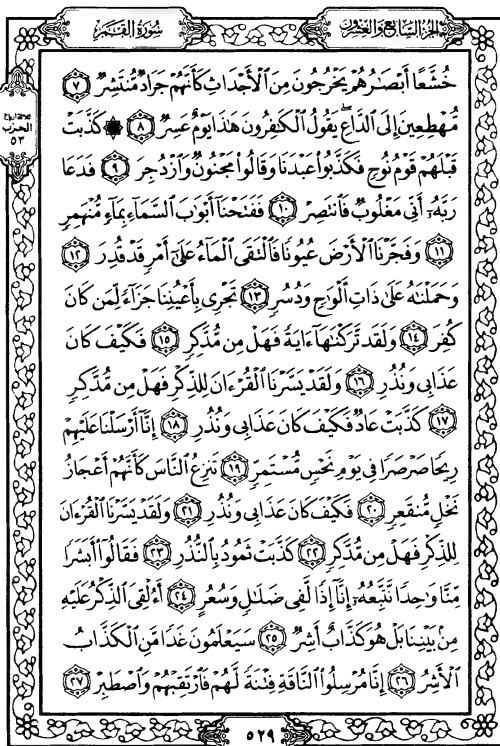 سُورَةُ القَمَر
الجُزْءُ السَّابِعُ وَالعِشْرُون
الحِزْب
٥٣
خُشَّعًا أَبْصَٰرُهُمْ يَخْرُجُونَ مِنَ ٱلْأَجْدَاثِ كَأَنَّهُمْ جَرَادٌ مُّنتَشِرٌ ٧
مُّهْطِعِينَ إِلَى ٱلدَّاعِ يَقُولُ ٱلْكَٰفِرُونَ هَٰذَا يَوْمٌ عَسِرٌ ٨ ۞ كَذَّبَتْ
قَبْلَهُمْ قَوْمُ نُوحٍ فَكَذَّبُوا۟ عَبْدَنَا وَقَالُوا۟ مَجْنُونٌ وَٱزْدُجِرَ ٩ فَدَعَا
رَبَّهُۥٓ أَنِّى مَغْلُوبٌ فَٱنتَصِرْ ١٠ فَفَتَحْنَآ أَبْوَٰبَ ٱلسَّمَآءِ بِمَآءٍ مُّنْهَمِرٍ
١١ وَفَجَّرْنَا ٱلْأَرْضَ عُيُونًا فَٱلْتَقَى ٱلْمَآءُ عَلَىٰٓ أَمْرٍ قَدْ قُدِرَ ١٢
وَحَمَلْنَٰهُ عَلَىٰ ذَاتِ أَلْوَٰحٍ وَدُسُرٍ ١٣ تَجْرِى بِأَعْيُنِنَا جَزَآءً لِّمَن كَانَ
كُفِرَ ١٤ وَلَقَد تَّرَكْنَٰهَآ ءَايَةً فَهَلْ مِن مُّدَّكِرٍ ١٥ فَكَيْفَ كَانَ
عَذَابِى وَنُذُرِ ١٦ وَلَقَدْ يَسَّرْنَا ٱلْقُرْءَانَ لِلذِّكْرِ فَهَلْ مِن مُّدَّكِرٍ
١٧ كَذَّبَتْ عَادٌ فَكَيْفَ كَانَ عَذَابِى وَنُذُرِ ١٨ إِنَّآ أَرْسَلْنَا عَلَيْهِمْ
رِيحًا صَرْصَرًا فِى يَوْمِ نَحْسٍ مُّسْتَمِرٍّ ١٩ تَنزِعُ ٱلنَّاسَ كَأَنَّهُمْ أَعْجَازُ
نَخْلٍ مُّنقَعِرٍ ٢٠ فَكَيْفَ كَانَ عَذَابِى وَنُذُرِ ٢١ وَلَقَدْ يَسَّرْنَا ٱلْقُرْءَانَ
لِلذِّكْرِ فَهَلْ مِن مُّدَّكِرٍ ٢٢ كَذَّبَتْ ثَمُودُ بِٱلنُّذُرِ ٢٣ فَقَالُوٓا۟ أَبَشَرًا
مِّنَّا وَٰحِدًا نَّتَّبِعُهُۥٓ إِنَّآ إِذًا لَّفِى ضَلَٰلٍ وَسُعُرٍ ٢٤ أَءُلْقِىَ ٱلذِّكْرُ عَلَيْهِ
مِنۢ بَيْنِنَا بَلْ هُوَ كَذَّابٌ أَشِرٌ ٢٥ سَيَعْلَمُونَ غَدًا مَّنِ ٱلْكَذَّابُ
ٱلْأَشِرُ ٢٦ إِنَّا مُرْسِلُوا۟ ٱلنَّاقَةِ فِتْنَةً لَّهُمْ فَٱرْتَقِبْهُمْ وَٱصْطَبِرْ ٢٧
٥٢٩